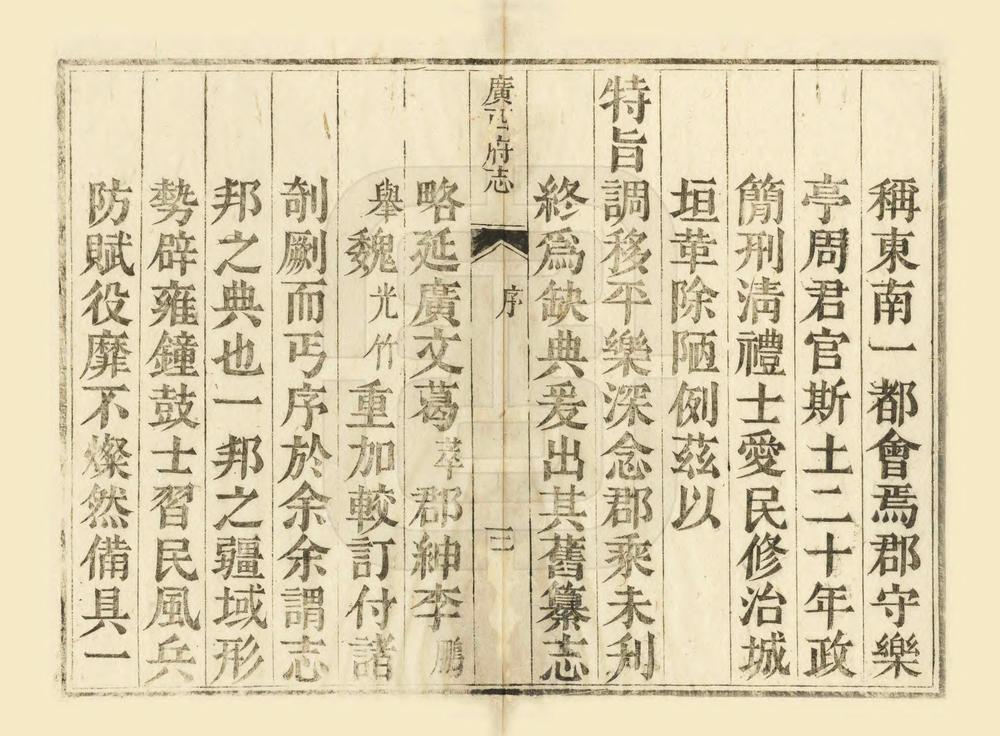 稱東南一都會焉郡守樂
亭周君官斯土二十年政
簡刑淸禮士愛民修治城
垣革除陋例茲以
特旨調移平樂深念郡乘未刋
終爲缺典爰出其舊纂志
廣西府志
序
三
略延廣文葛萃郡紳李鵬
舉魏光竹重加較訂付諸
剞劂而丐序於余余謂志
邦之典也一邦之疆域形
勢辟雍鐘鼓士習民風兵
防賦役靡不燦然備具一